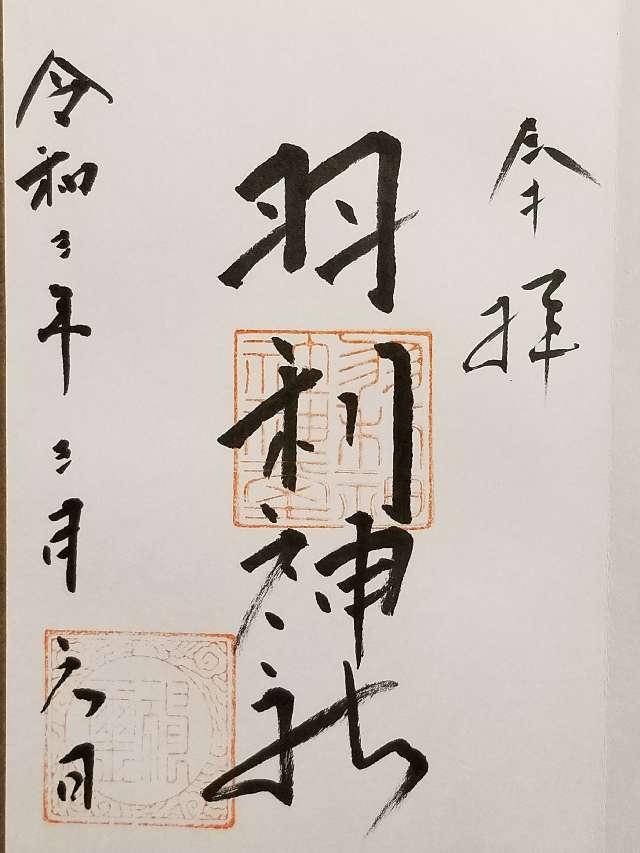 奉拝
羽利神社
令和三年三月六日